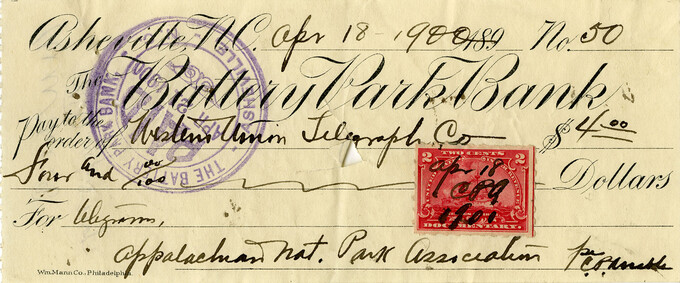 Asheville, N.C. Apr 18 - 1900 189 No. 50
The Battery Park Bank
Pay to the order of Western Union Telegraph Co $4.00
Four and 00/100 Dollars
For telegrams,
Appalachian Nat. Park Association
per C.P.
Wm. Mann Co., Philadelphia
TWO CENTS
2 2
Apr 18
CPA
1901
DOCUMENTARY.
THE BATTERY PARK BANK
ASHEVILLE